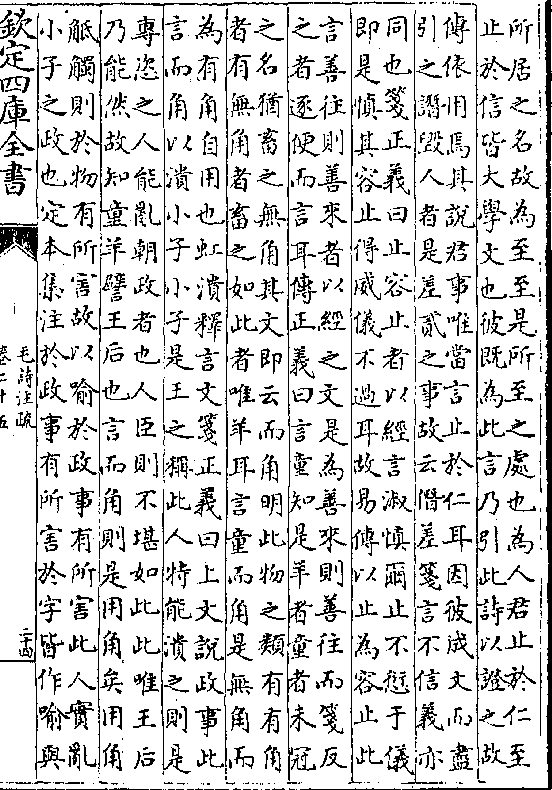 所居之名故為至至是所至之處也為人君止於仁至
止於信皆大學文也彼既為此言乃引此詩以證之故
傳依用焉其說君事唯當言止於仁耳因彼成文而盡
引之譖毀人者是差貳之事故云僭差箋言不信義亦
同也箋正義曰止容止者以經言淑慎爾止不愆于儀
即是慎其容止得威儀不過耳故易傳以止為容止此
言善往則善來者以經之文是為善來則善往而箋反
之者逐便而言耳傳正義曰言童知是羊者童者未冠
之名猶畜之無角其文即云而角明此物之類有有角
者有無角者畜之如此者唯羊耳言童而角是無角而
為有角自用也虹潰釋言文箋正義曰上文說政事此
言而角以潰小子小子是王之稱此人特能潰之則是
專恣之人能亂朝政者也人臣則不堪如此此唯王后
乃能然故知童羊譬王后也言而角則是用角矣用角
觝觸則於物有所害故以喻於政事有所害此人實亂
小子之政也定本集注於政事有所害於字皆作喻與
欽定四庫全書
毛詩注疏
卷二十五
二十四